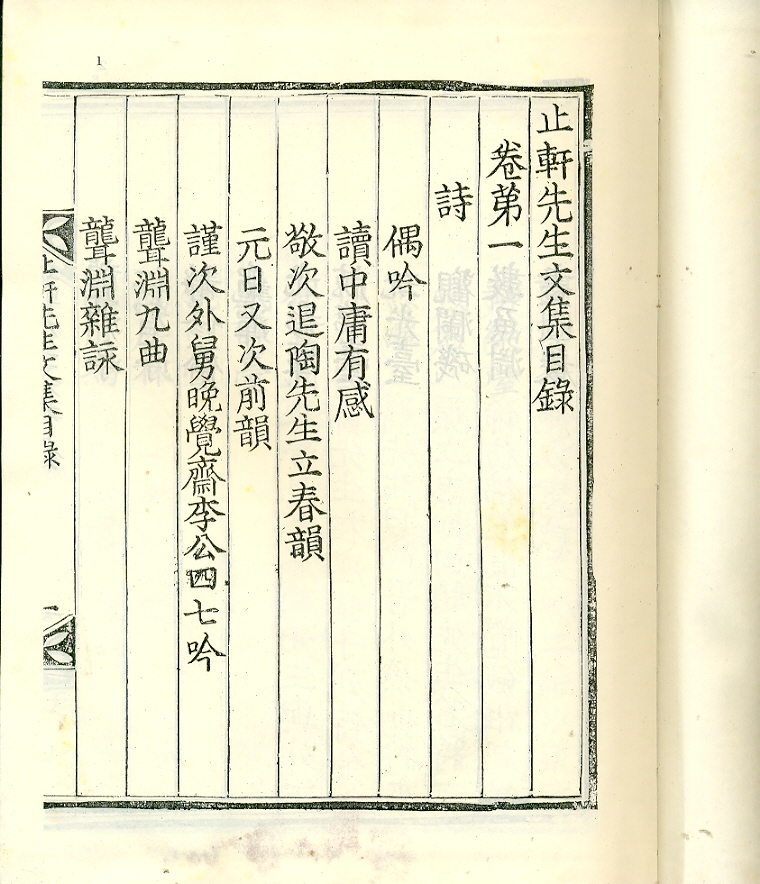 1
止軒先生文集目錄
卷第一
詩
偶吟
讀中庸有感
敬次退陶先生立春韻
元日又次前韻
謹次外舅晩覺齋李公四七吟
聾淵九曲
聾淵雜詠
止軒先生文集目錄
一